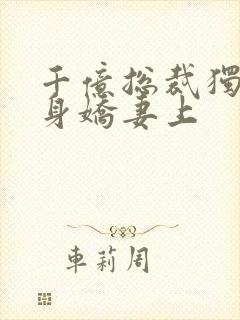 千億总裁獨
身嬌妻上
車莉周